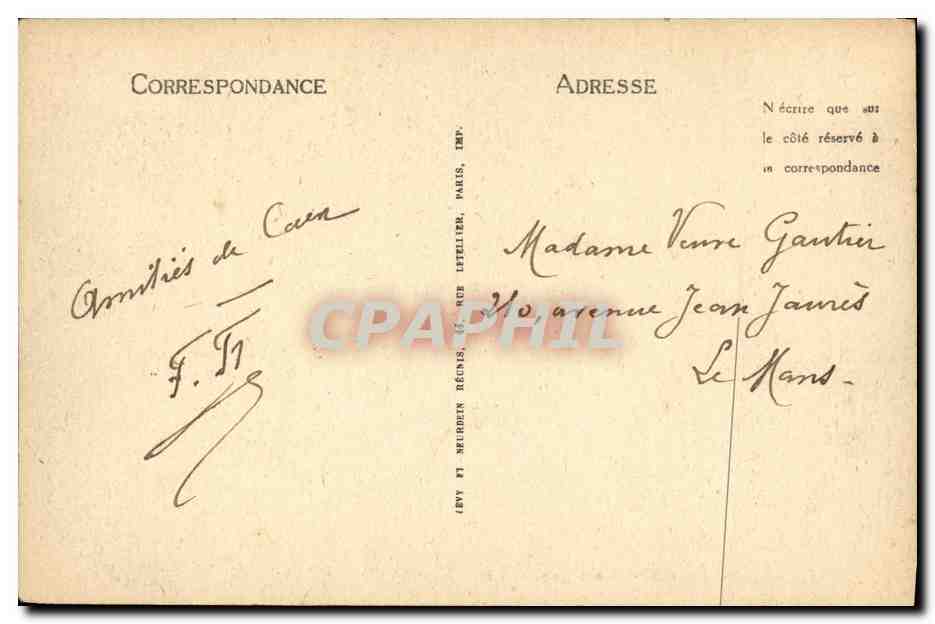 CORRESPONDANCE
ADRESSE
N écrire que sur
le côté réservé à
la correspondance
Amitiés de Caen
LÉVY ET NEURDEIN RÉUNIS, RUE LETELLIER, PARIS, IMP.
Madame Veuve Gautier
210, avenue Jean Jaurès
Le Mans -
CPAPHIL